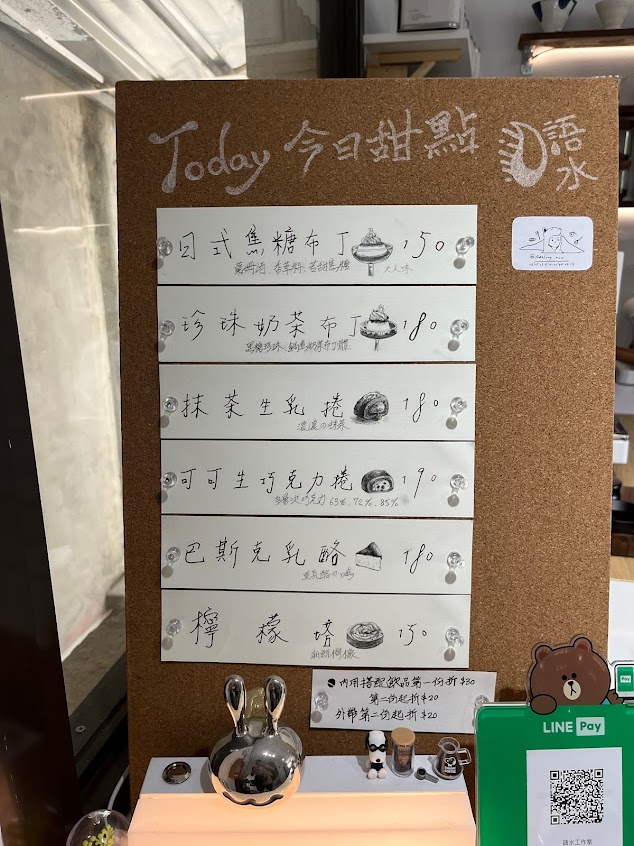 Today 今日甜點
語水
日式焦糖布丁 150
蘭姆酒、香草籽、苦甜焦糖 大人味
珍珠奶茶布丁 180
黑糖珍珠、鮮奶茶布丁體
抹茶生乳捲 180
濃濃の抹茶
可可生巧克力捲 190
多層次巧克力 63%、72%、85%
巴斯克乳酪 180
檸檬塔 150
內用搭配飲品第一份折$30
第二份起折$20
外帶第二份起折$20
LINE Pay
語水工作室